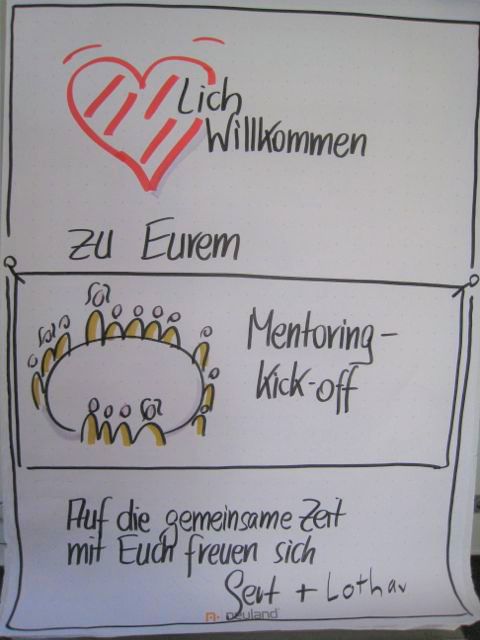 Lich
Willkommen
zu Eurem
Mentoring-
Kick-off
Auf die gemeinsame Zeit
mit Euch freuen sich
+ Lothar
neuland